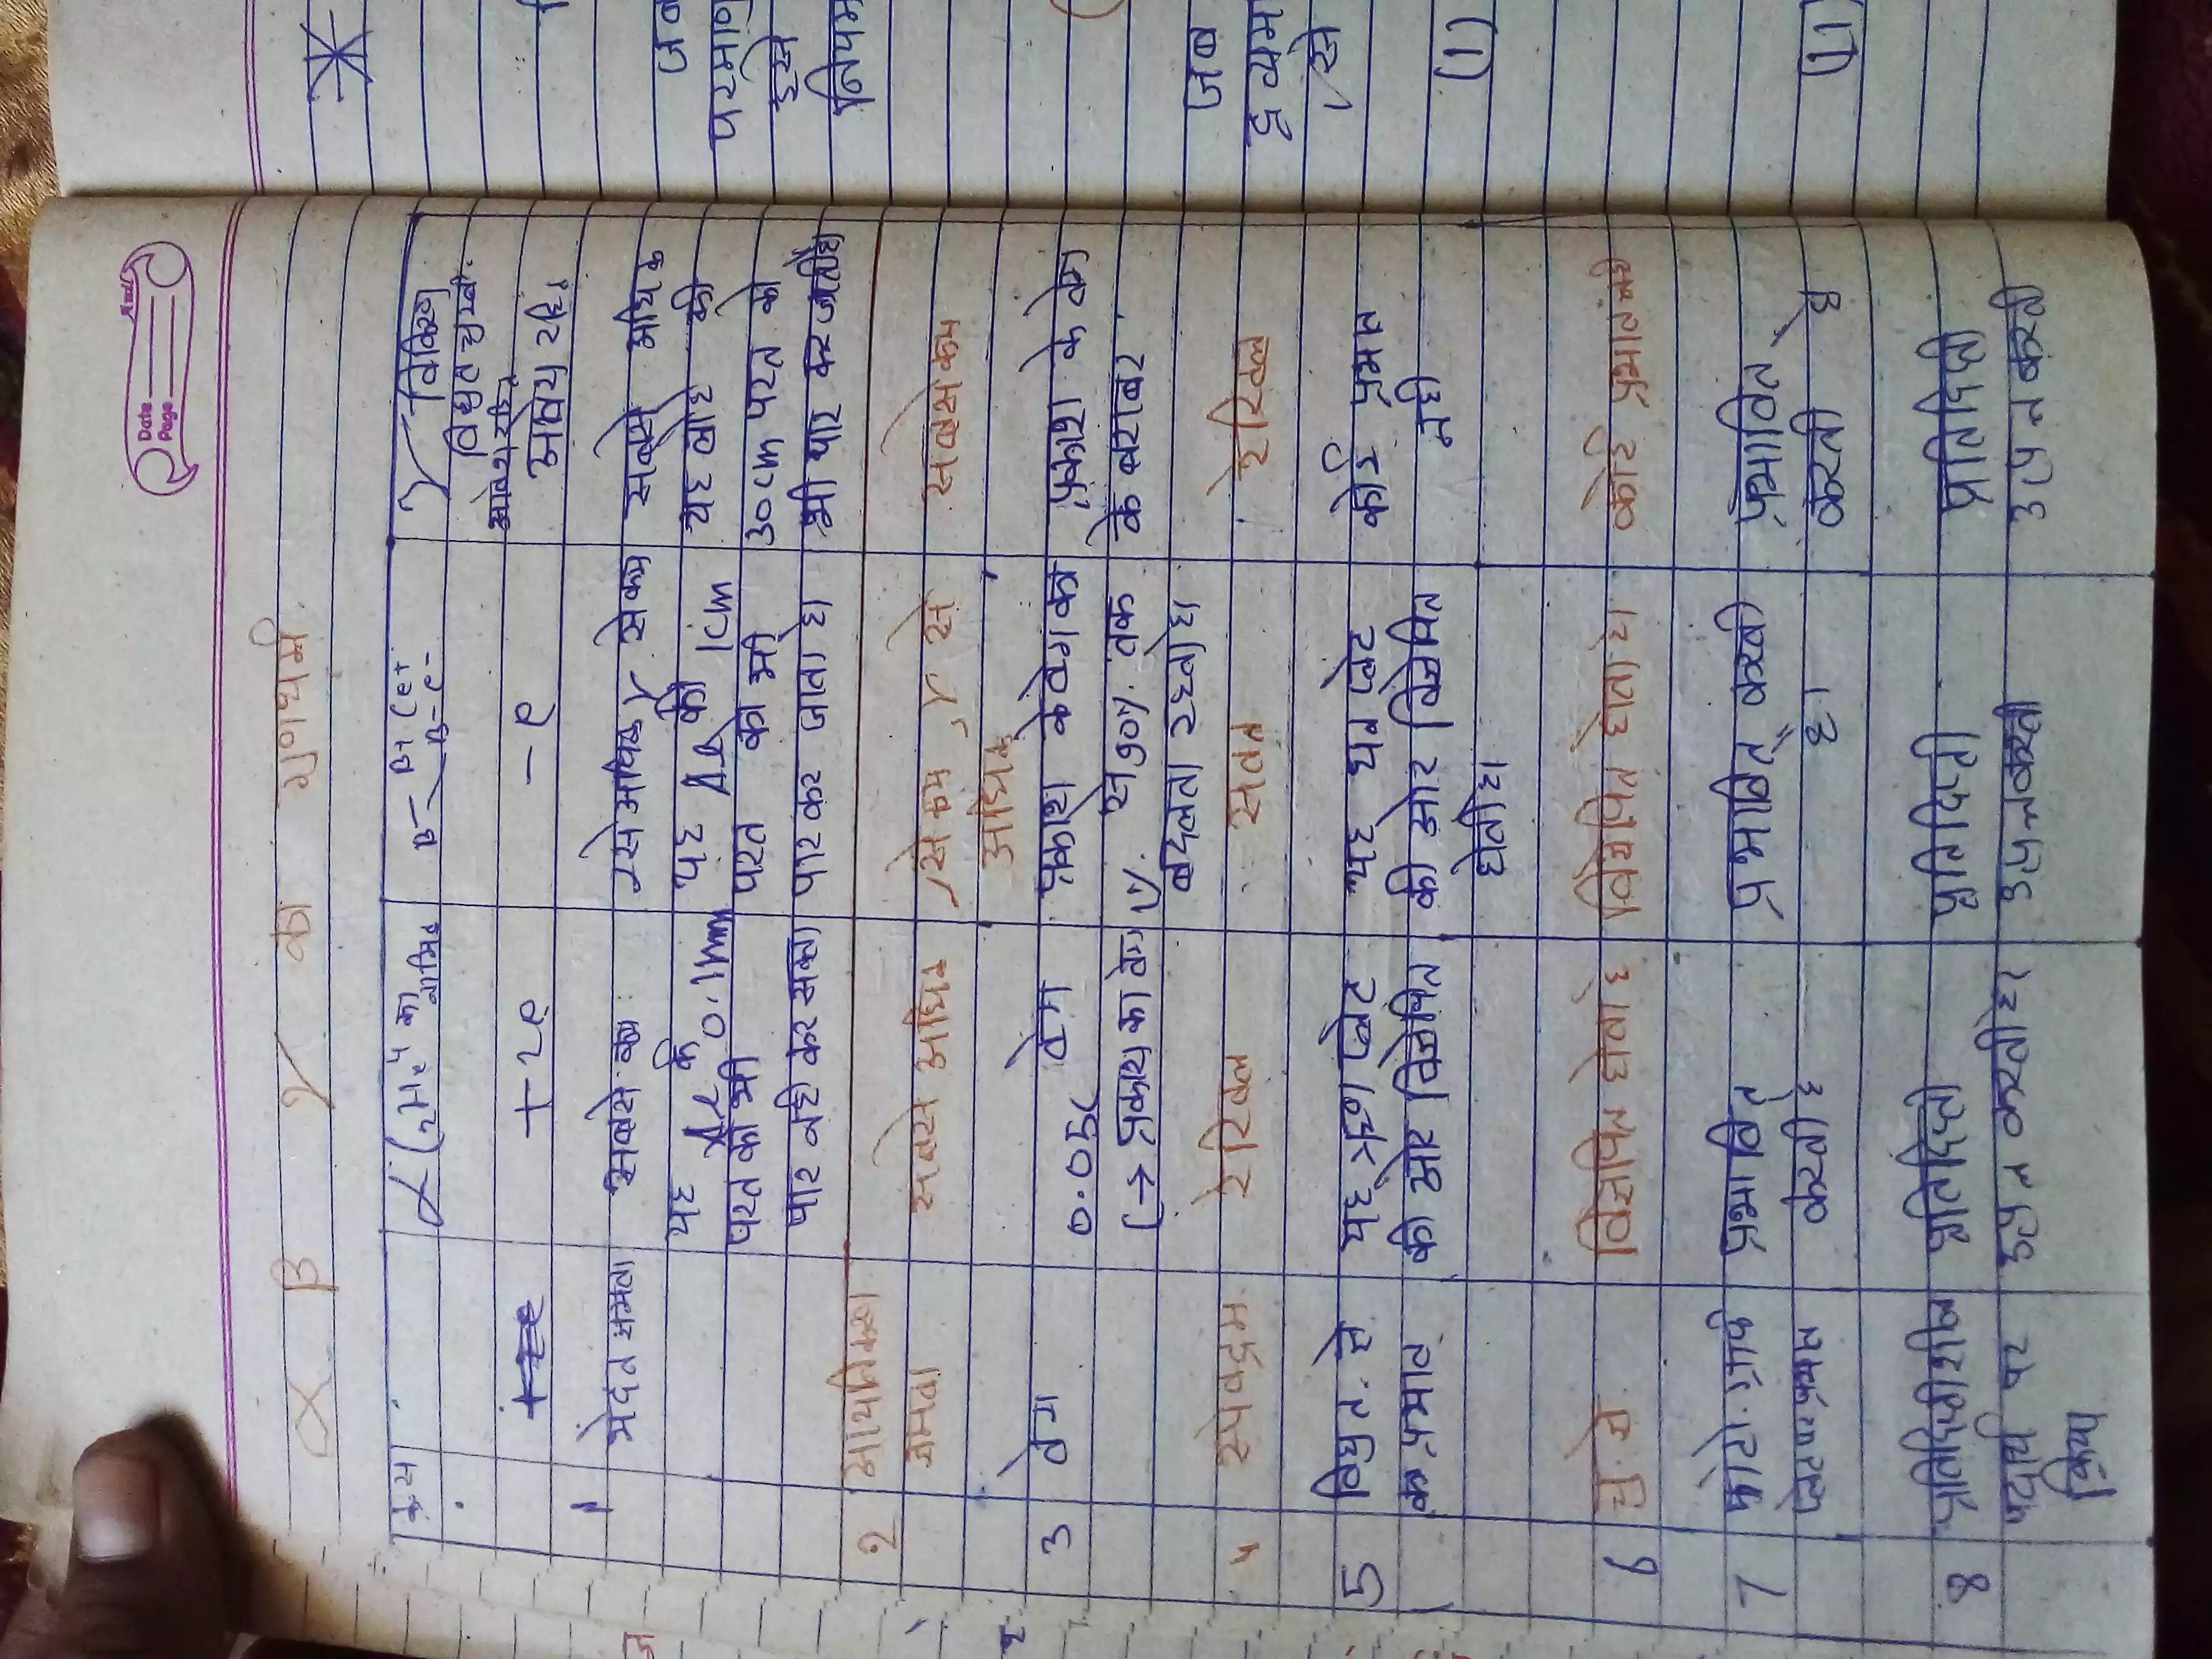 Date
Page
α β γ का गुणधर्म
क्र.स α (₂He⁴ का नाभिक β β+ (e+ β-e- γ विकिरण
विद्युत चुम्ब.
+2e -e आवेश रहित
1 भेदन क्षमता सबसे कम सबसे अधिक
यह Al के 0.1mm यह Al की 1cm यह लोहे की
परत को भी परत को भी 30cm परत को
पार नहीं कर सकता पार कर जाता है भी पार कर जाती है
2 आयनिकरण सबसे अधिक से कम γ से सबसे कम
क्षमता अधिक
3 वेग वेग 0.05c प्रकाश के वेग का प्रकाश के वेग
c → प्रकाश का वेग 1% से 90% तक के बराबर
बदलता रहता है
4 स्पेक्ट्रम रेखिल सतत रेखिल
5 विद्युत क्षे यह ऋण प्लेट यह धन प्लेट कोई प्रभाव
का प्रभाव की ओर विक्षेपित की ओर विक्षेपित नही
होती है
6 चु. क्षे. विक्षेपित होता है विक्षेपित होता है कोई प्रभाव नही
7 फोटोग्राफी प्रभावित प्रभावित करती प्रभावित
प्लेट पर प्रभाव करती है है। करती है
8 प्रतिदिप्तीशील प्रतिदिप्ती प्रतिदिप्ती प्रतिदिप्ती
पदार्थ पर उत्पन्न करती है उत्पन्न करती उत्पन्न करती
क्रिया
जब
परमाणु
इसे
नियम
जब
द्रव्यम
से
(1)
(11)